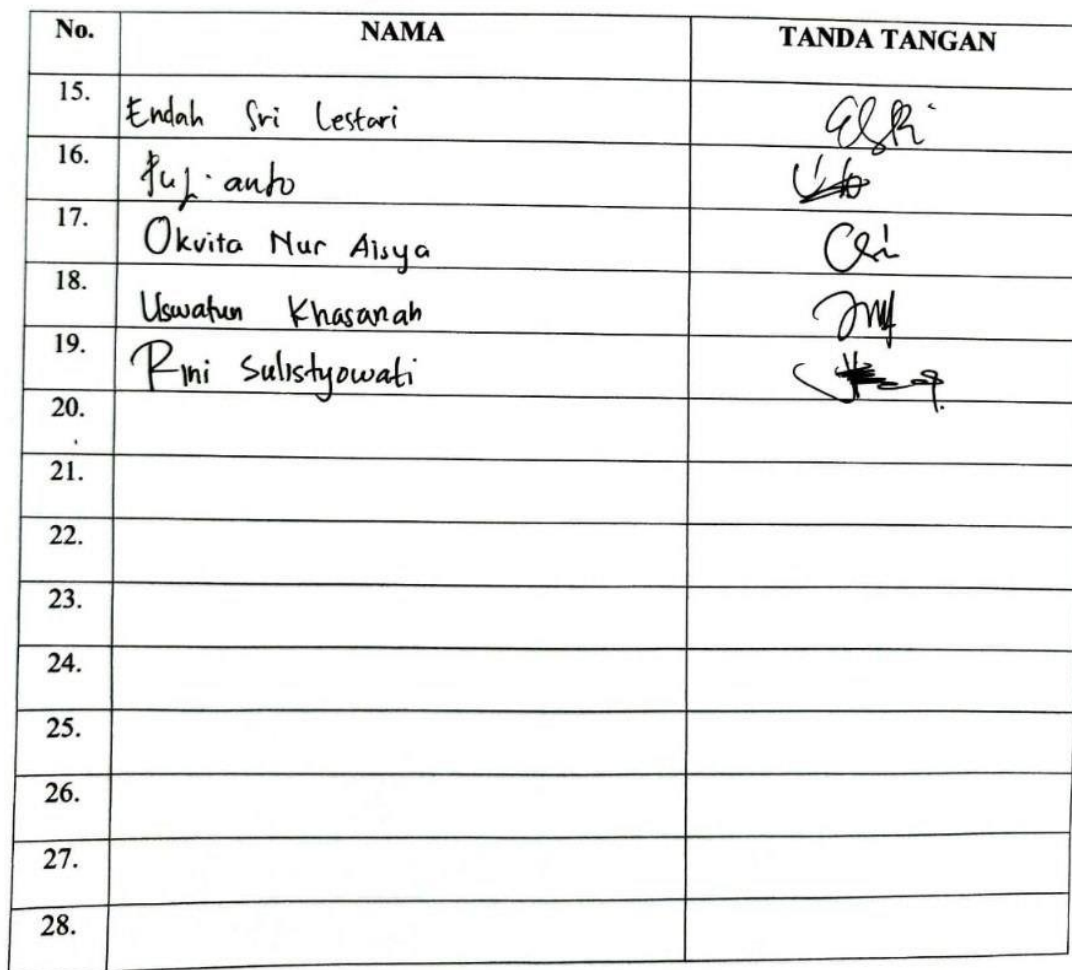 No. NAMA TANDA TANGAN
15. Endah Sri Lestari
16. Puji anto
17. Okvita Nur Aisya
18. Uswatun Khasanah
19. Rini Sulistyowati
20.
21.
22.
23.
24.
25.
26.
27.
28.